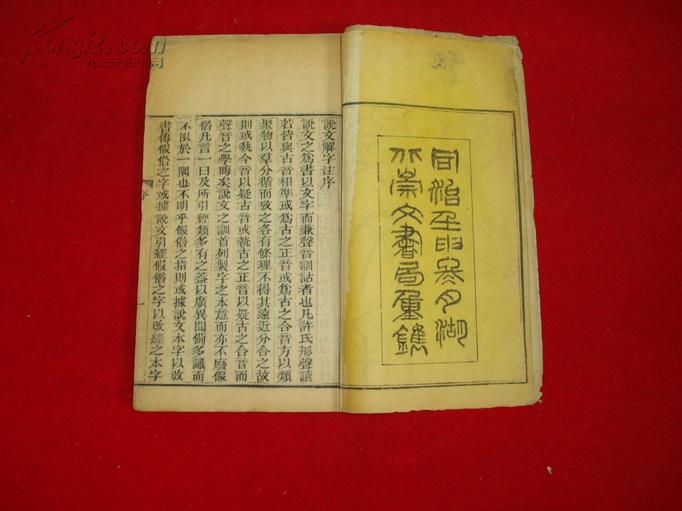 同治壬申月湖
北崇文書局重鐫
說文解字注序
說文之爲書以文字而兼聲音訓詁者也凡許氏形聲讀
若皆與古音相準或爲古之正音或爲古之合音方以類
聚物以羣分循而攷之各有條理不得其遠近分合之故
則或執今音以疑古音或執古之正音以疑古之合音而
聲音之學晦矣說文之訓首列製字之本意而亦不廢假
借凡言一曰及所引經類多有之蓋以廣異聞備多識而
不限於一隅也不明乎假借之指則或據說文本字以改
書傳假借之字或據說文引經假借之字以改經之本字
序
一
Kongfz.com
孔夫子旧书网